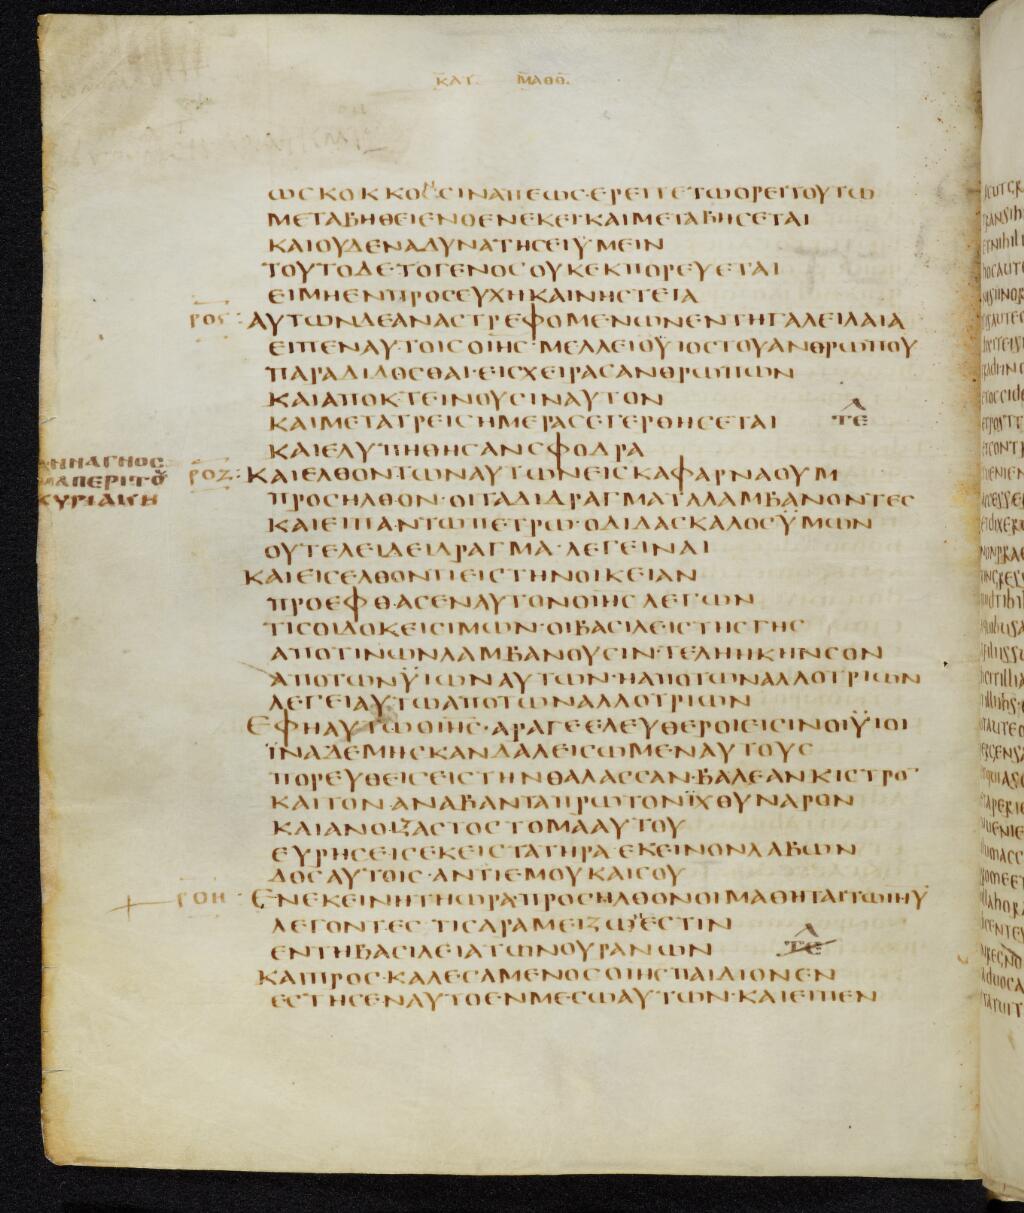 ΚΑΤ· ΜΑΘΘ·
ΩΣΚΟΚΚΟΣΣΙΝΑΠΕΩΣ·ΕΡΕΙΤΕΤΩΟΡΕΙΤΟΥΤΩ
ΜΕΤΑΒΗΘΕΙΕΝΘΕΝΕΚΕΙ·ΚΑΙΜΕΤΑΒΗΣΕΤΑΙ
ΚΑΙΟΥΔΕΝΑΔΥΝΑΤΗΣΕΙΫΜΕΙΝ
ΤΟΥΤΟΔΕΤΟΓΕΝΟΣΟΥΚΕΚΠΟΡΕΥΕΤΑΙ
ΕΙΜΗΕΝΠΡΟΣΕΥΧΗΚΑΙΝΗΣΤΕΙΑ
ΡΟϚ· ΑΥΤΩΝΔΕΑΝΑΣΤΡΕΦΟΜΕΝΩΝΕΝΤΗΓΑΛΕΙΛΑΙΑ
ΕΙΠΕΝΑΥΤΟΙΣΟΙΗΣ·ΜΕΛΛΕΙΟΫΙΟΣΤΟΥΑΝΘΡΩΠΟΥ
ΠΑΡΑΔΙΔΟΣΘΑΙ·ΕΙΣΧΕΙΡΑΣΑΝΘΡΩΠΩΝ
ΚΑΙΑΠΟΚΤΕΙΝΟΥΣΙΝΑΥΤΟΝ
ΚΑΙΜΕΤΑΤΡΕΙΣΗΜΕΡΑΣΕΓΕΡΘΗΣΕΤΑΙ ΤΕ
ΚΑΙΕΛΥΠΗΘΗΣΑΝΣΦΟΔΡΑ
ΑΝΝΑΓΝΟΣ
ΜΑΠΕΡΙΤΟ
ΚΥΡΙΑΚΗ
ΡΟΖ· ΚΑΙΕΛΘΟΝΤΩΝΑΥΤΩΝΕΙΣΚΑΦΑΡΝΑΟΥΜ
ΠΡΟΣΗΛΘΟΝ·ΟΙΤΑΔΙΔΡΑΓΜΑΤΑΛΑΜΒΑΝΟΝΤΕΣ
ΚΑΙΕΙΠΑΝΤΩΠΕΤΡΩ·ΟΔΙΔΑΣΚΑΛΟΣΫΜΩΝ
ΟΥΤΕΛΕΙΔΕΙΔΡΑΓΜΑ·ΛΕΓΕΙΝΑΙ
ΚΑΙΕΙΣΕΛΘΟΝΤΙΕΙΣΤΗΝΟΙΚΕΙΑΝ
ΠΡΟΕΦΘΑΣΕΝΑΥΤΟΝΟΙΗΣΛΕΓΩΝ
ΤΙΣΟΙΔΟΚΕΙΣΙΜΩΝ·ΟΙΒΑΣΙΛΕΙΣΤΗΣΓΗΣ
ΑΠΟΤΙΝΩΝΛΑΜΒΑΝΟΥΣΙΝ·ΤΕΛΗΗΚΗΝΣΟΝ
ΑΠΟΤΩΝΫΙΩΝΑΥΤΩΝ·ΗΑΠΟΤΩΝΑΛΛΟΤΡΙΩΝ
ΛΕΓΕΙΑΥΤΩΑΠΟΤΩΝΑΛΛΟΤΡΙΩΝ
ΕΦΗΑΥΤΩΟΙΗΣ·ΑΡΑΓΕΕΛΕΥΘΕΡΟΙΕΙΣΙΝΟΙΫΙΟΙ
ΪΝΑΔΕΜΗΣΚΑΝΔΑΛΕΙΣΩΜΕΝΑΥΤΟΥΣ
ΠΟΡΕΥΘΕΙΣΕΙΣΤΗΝΘΑΛΑΣΣΑΝ·ΒΑΛΕΑΝΚΙΣΤΡΟ
ΚΑΙΤΟΝΑΝΑΒΑΝΤΑΠΡΩΤΟΝΪΧΘΥΝΑΡΟΝ
ΚΑΙΑΝΟΙΞΑΣΤΟΣΤΟΜΑΑΥΤΟΥ
ΕΥΡΗΣΕΙΣΕΚΕΙΣΤΑΤΗΡΑ·ΕΚΕΙΝΟΝΛΑΒΩΝ
ΔΟΣΑΥΤΟΙΣ·ΑΝΤΙΕΜΟΥΚΑΙΣΟΥ
ΡΟΗ· ΕΝΕΚΕΙΝΗΤΗΩΡΑ·ΠΡΟΣΗΛΘΟΝΟΙΜΑΘΗΤΑΙΤΩΙΗΥ
ΛΕΓΟΝΤΕΣ·ΤΙΣΑΡΑΜΕΙΖΩΝΕΣΤΙΝ
ΕΝΤΗΒΑΣΙΛΕΙΑΤΩΝΟΥΡΑΝΩΝ ΤΕ
ΚΑΙΠΡΟΣ·ΚΑΛΕΣΑΜΕΝΟΣΟΙΗΣΠΑΙΔΙΟΝΕΝ
ΕΣΤΗΣΕΝΑΥΤΟΕΝΜΕΣΩΑΥΤΩΝ·ΚΑΙΕΙΠΕΝ